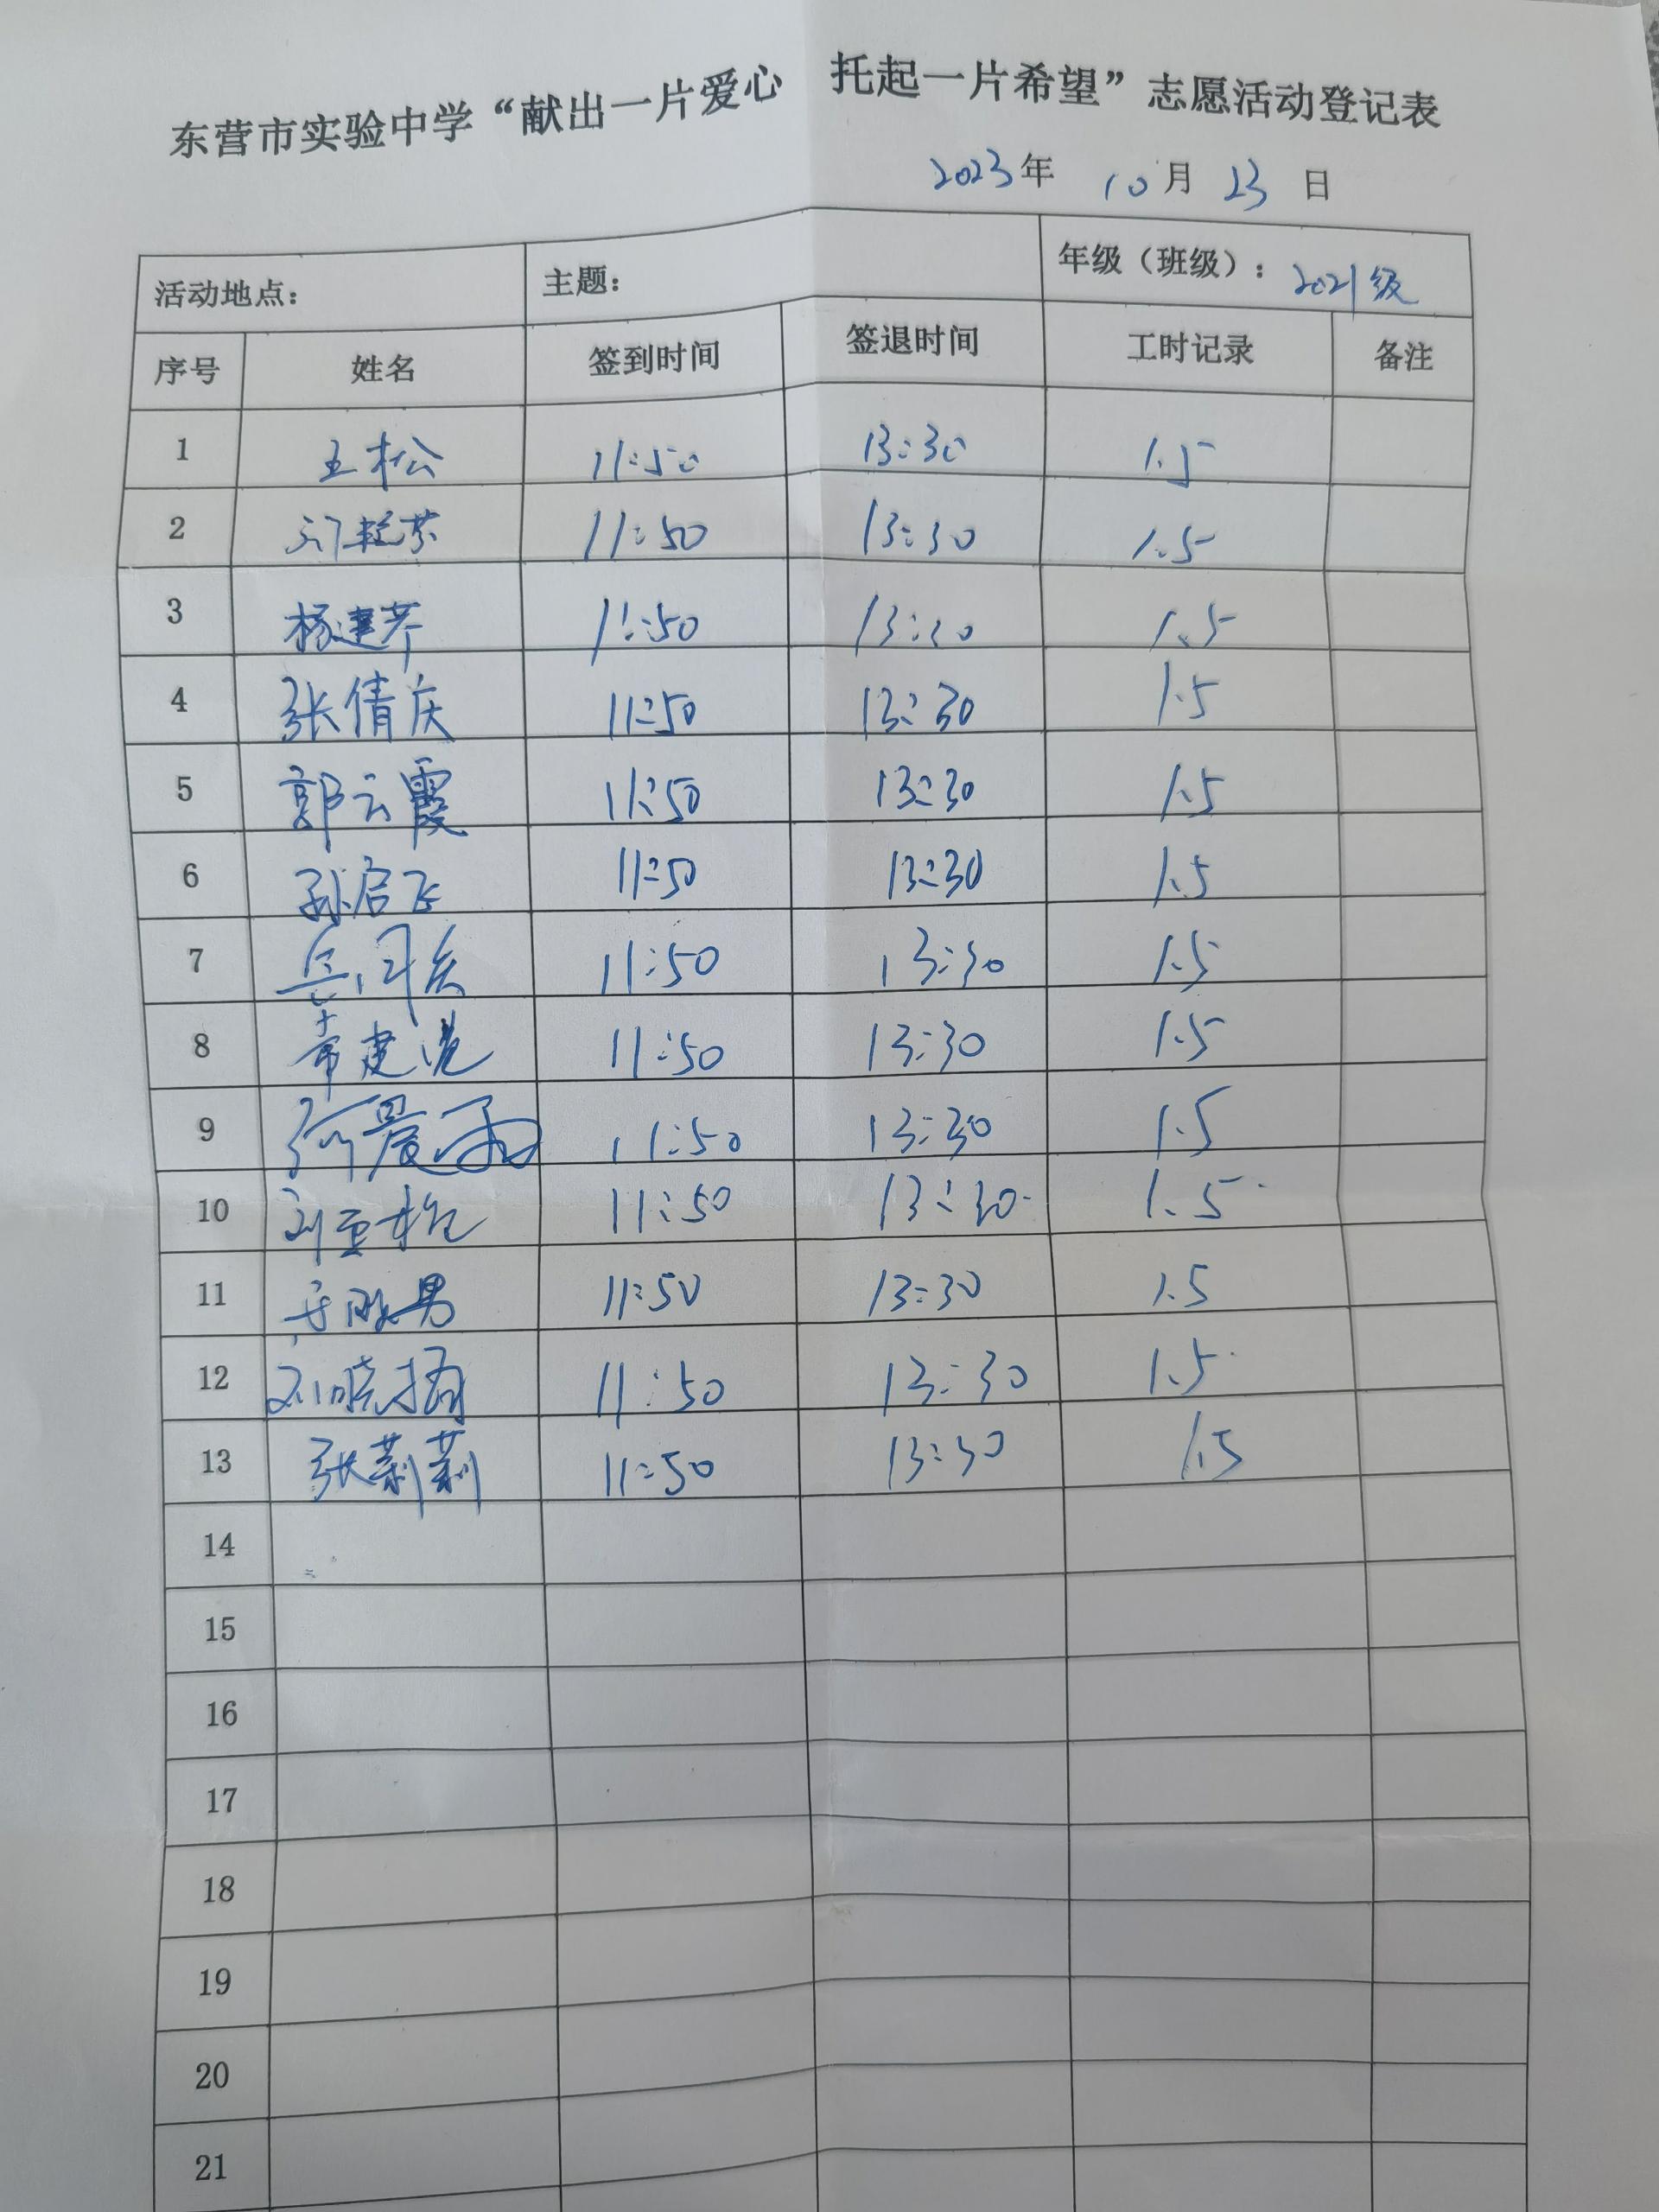 东营市实验中学“献出一片爱心 托起一片希望”志愿活动登记表
2023年 10月 23日
活动地点： 主题： 年级（班级）：2021级
序号 姓名 签到时间 签退时间 工时记录 备注
1 王松 11:50 13:30 1.5
2 11:50 13:30 1.5
3 杨建芹 11:50 13:30 1.5
4 张倩庆 11:50 13:30 1.5
5 郭云霞 11:50 13:30 1.5
6 孙启飞 11:50 13:30 1.5
7 11:50 13:30 1.5
8 常建 11:50 13:30 1.5
9 11:50 13:30 1.5
10 11:50 13:30 1.5
11 11:50 13:30 1.5
12 11:50 13:30 1.5
13 张莉莉 11:50 13:30 1.5
14
15
16
17
18
19
20
21